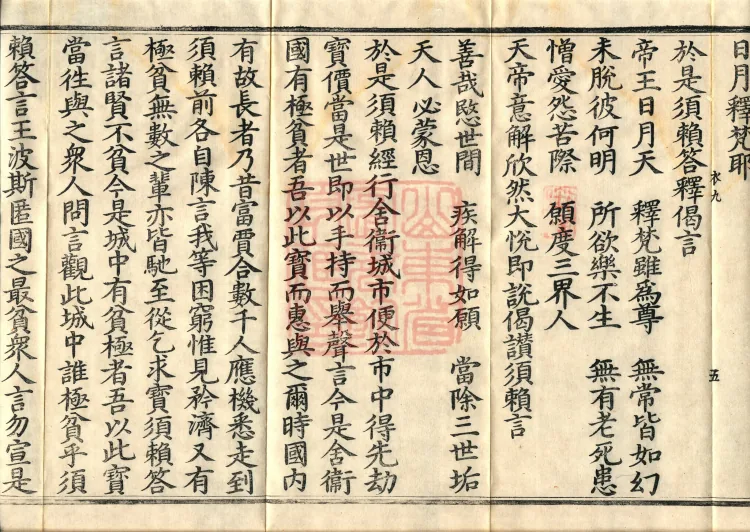 日月釋梵耶
衣九
五
於是須賴答釋偈言
帝王日月天　釋梵雖爲尊　無常皆如幻
未脫彼何明　所欲樂不生　無有老死患
憎愛怨苦際　願度三界人
天帝意解欣然大悅即說偈讚須賴言
善哉愍世間　疾解得如願　當除三世垢
天人必蒙恩
於是須賴經行舍衞城市便於市中得先劫
寶價當是世即以手持而舉聲言今是舍衞
國有極貧者吾以此寶而惠與之爾時國内
有故長者乃昔富賈合數千人應機悉走到
須賴前各自陳言我等困窮惟見矜濟又有
極貧無數之輩亦皆馳至從乞求寶須賴答
言諸賢不貧今是城中有貧極者吾以此寶
當徃與之衆人問言觀此城中誰極貧乎須
賴答言王波斯匿國之最貧衆人言勿宣是